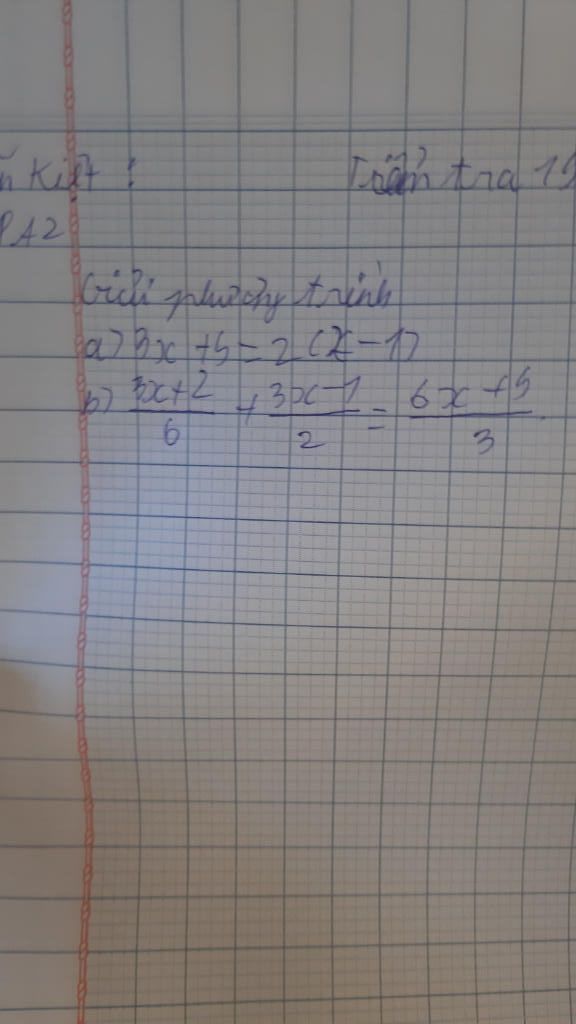 n Kiệt : tra 15
PA2
Giải phương trình
a) 3x + 5 = 2 (x - 1)
b) 3x+2/6 + 3x-1/2 = 6x+5/3